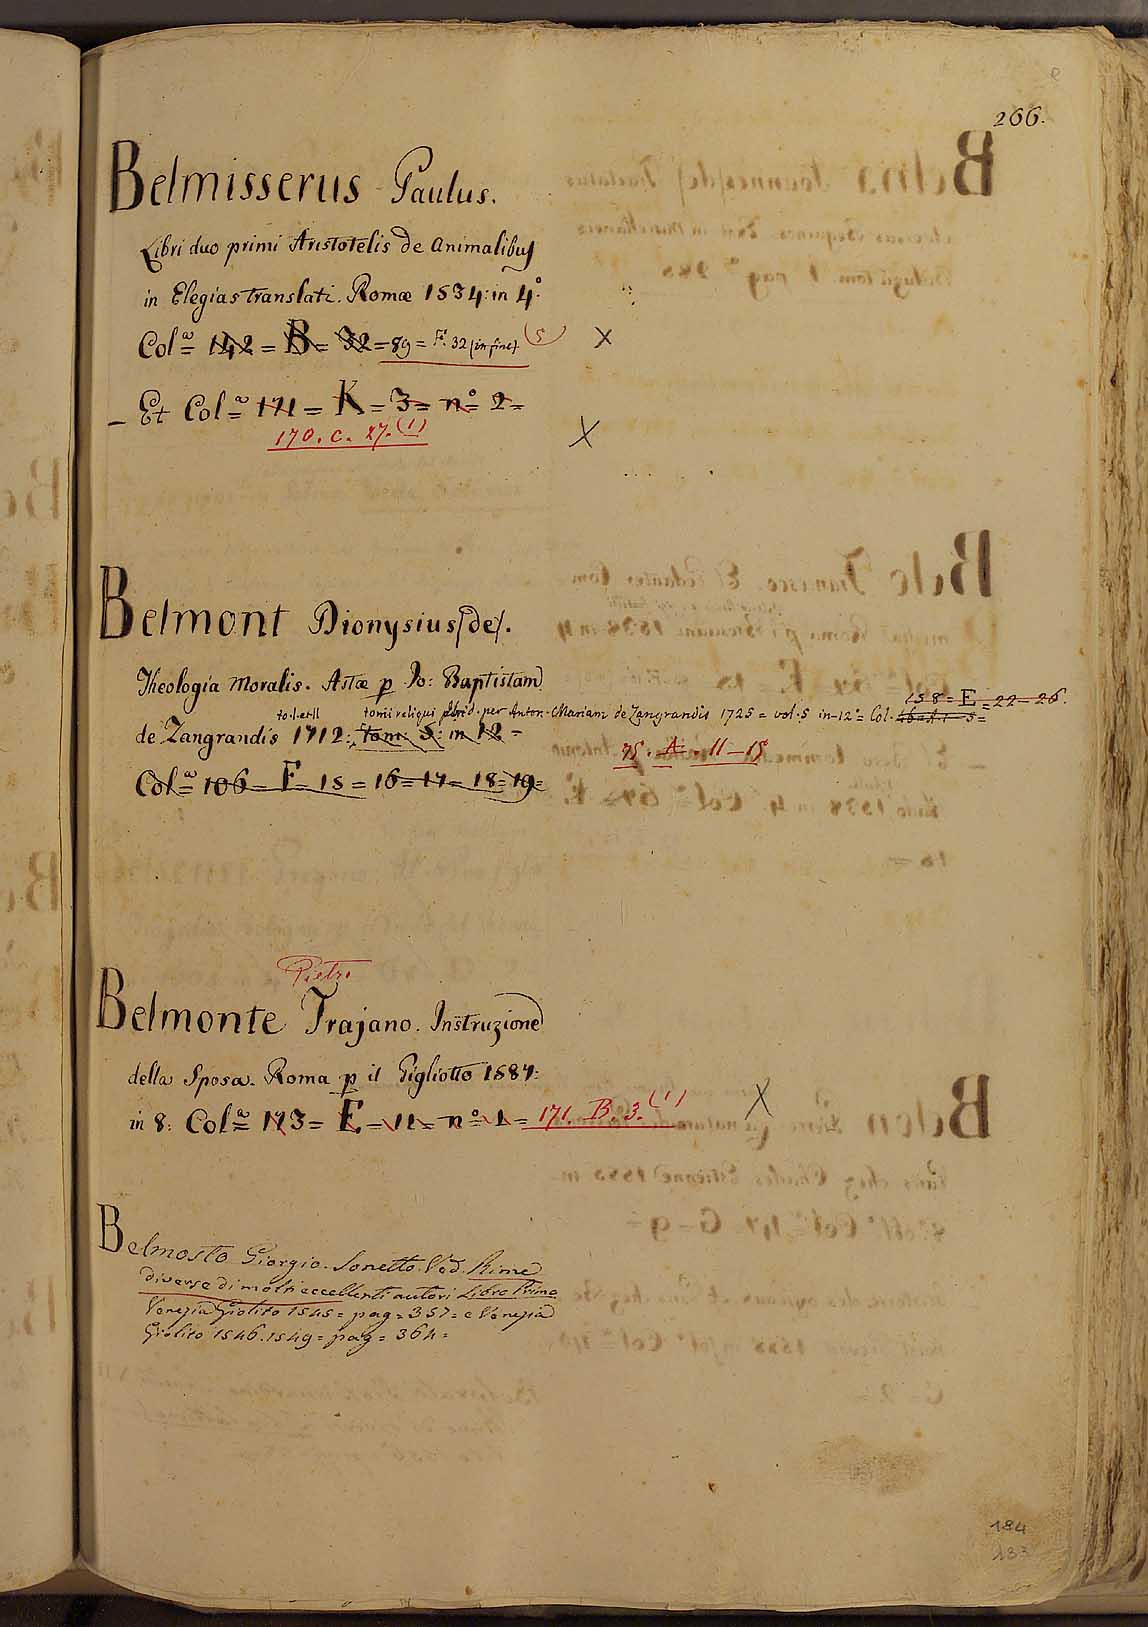 266.
Belmisserus Paulus.
Libri duo primi Aristotelis de Animalibus
in Elegias translati. Romæ 1534: in 4.°
Col.ª 142 = B = 32 = 89 = F. 32 (in fine) (5) X
– Et Col.ª 171 = K = 3 = n.° 2 =
170. C. 27. (1) X
Belmont Dionysius (de).
Theologia Moralis. Astæ p Jo: Baptistam
158 = E = 22 – 26.
to. I. et II tomi reliqui ibid. per Anton. Mariam de Zangrandis 1725 = vol. 5 in-12° = Col.
de Zangrandis 1712: tom: 5: in 12 =
75. A. 11 – 15
Col.ª 106 = F 15 = 16 = 17 = 18 = 19 =
Pietro
Belmonte Trajano. Instruzione
della Sposa. Roma p il Gigliotto 1587:
in 8: Col.ª 173 = E = 11 = n.° 1 = 171. B. 3. (1) X
Belmosto Giorgio. Sonetto. Ved. Rime
diverse di molti eccellenti autori Libro Primo
Venezia Giolito 1545 = pag = 357 = e Venezia
Giolito 1546. 1549 = pag = 364 =
184
183